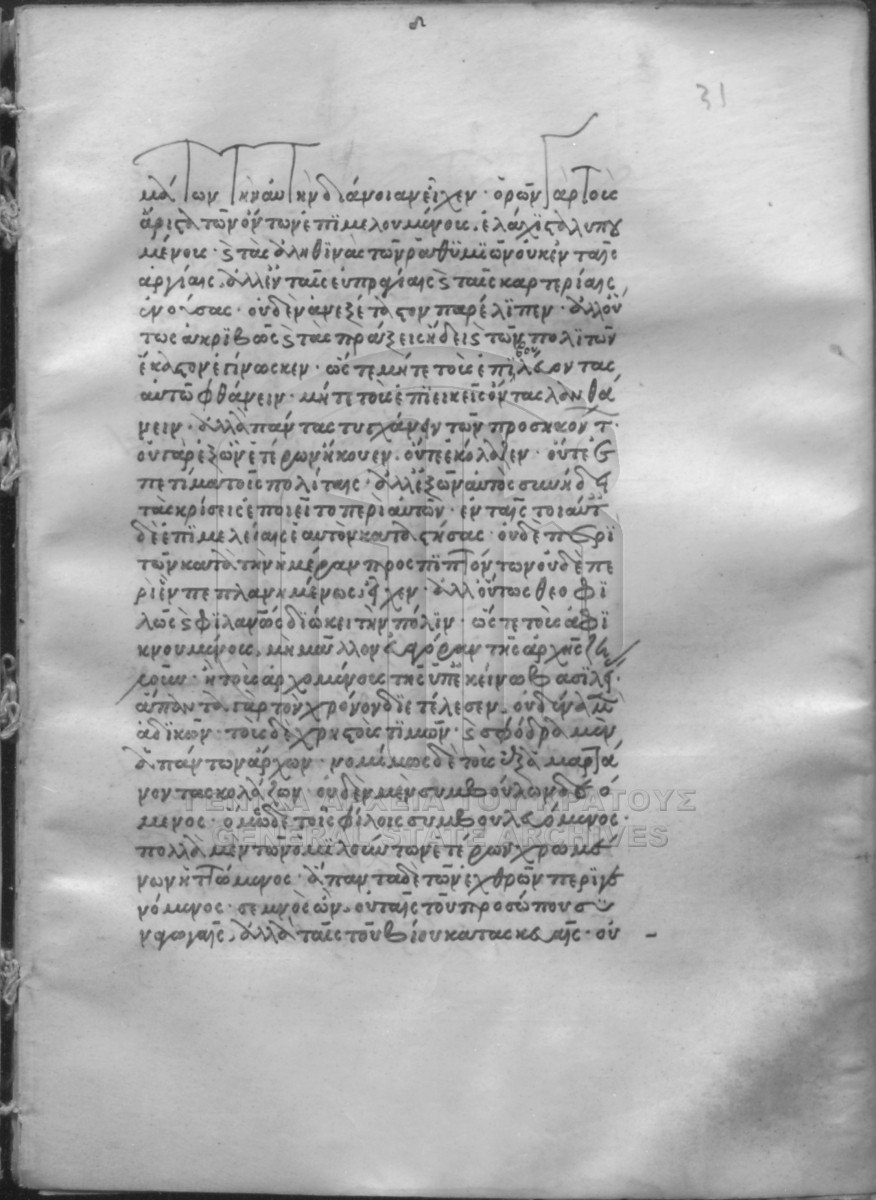 δ
31
μάτων τὴν αὐτὴν διάνοιαν εἶχεν · ὁρῶν γὰρ τοὺς
ἄριστα τῶν ὄντων ἐπιμελουμένους, ἐλάχιστα λυπου
μένους · ϗ τὰς ἀληθινὰς τῶν ῥαθυμιῶν οὐκ ἐν ταῖς
ἀργίαις, ἀλλ' ἐν ταῖς εὐπραγίαις ϗ ταῖς καρτερίαις
ἐνούσας · οὐδὲν ἀνεξέταστον παρέλιπεν · ἀλλ' οὕ
τως ἀκριβῶς ϗ τὰς πράξεις ᾔδει ϗ τῶν πολιτῶν
ἕκαστον ἐγίνωσκεν · ὥστε μήτε τοὺς ἐπιβουλεύοντας
αὐτῶ φθάνειν · μήτε τοὺς ἐπιεικεῖς ὄντας λανθά
νειν · ἀλλὰ πάντας τυγχάνειν τῶν προσηκόντ ·
οὐ γὰρ ἐξ ὧν ἑτέρων ἤκουεν, οὔτ' ἐκόλαζεν · οὔτε ἐ
τίμα τοὺς πολίτας · ἀλλ' ἐξ ὧν αὐτὸς συνήδει
τὰς κρίσεις ἐποιεῖτο περὶ αὐτῶν · ἐν ταῖς τοιαύτ
δὲ ἐπιμελείαις ἑαυτὸν καταστήσας · οὐδὲ περὶ
τῶν κατὰ τὴν ἡμέραν προσπιπτόντων οὐδὲ πε
ρὶ ἓν πεπλανημένως εἶχεν · ἀλλ' οὕτως θεοφι
λῶς ϗ φιλανῶς διώκει τὴν πόλιν · ὥστε τοὺς ἀφι
κνουμένους, μὴ μᾶλλον θαρρεῖν τῆς ἀρχῆς
ἢ τοὺς ἀρχομένους τῆς ὑπ' ἐκείνω βασιλεί ·
ἅπαντα γὰρ τὸν χρόνον διετέλεσεν, οὐδένα μ
ἀδικῶν · τοὺς δὲ χρηστοὺς τιμῶν · ϗ σφόδρα μὲν
ἁπάντων ἄρχων · νομίμως δὲ τοὺς ἐξαμαρτά
νοντας κολάζων · οὐδὲν μὲν συμβούλων δεό
μενος · ὅμως δὲ τοῖς φίλοις συμβουλευόμενος ·
πολλὰ μὲν τῶν ὁμιλούντων ἑτέρων χρωμέ
νων ἡττώμενος · ἅπαντα δὲ τῶν ἐχθρῶν περιγε
νόμενος · σεμνὸς ὢν, οὐ ταῖς τοῦ προσώπου συ
ναγωγαῖς, ἀλλὰ ταῖς τοῦ βίου κατασκευαῖς · οὐ
ΓΕΝΙΚΑ ΑΡΧΕΙΑ ΤΟΥ ΚΡΑΤΟΥΣ
GENERAL STATE ARCHIVES